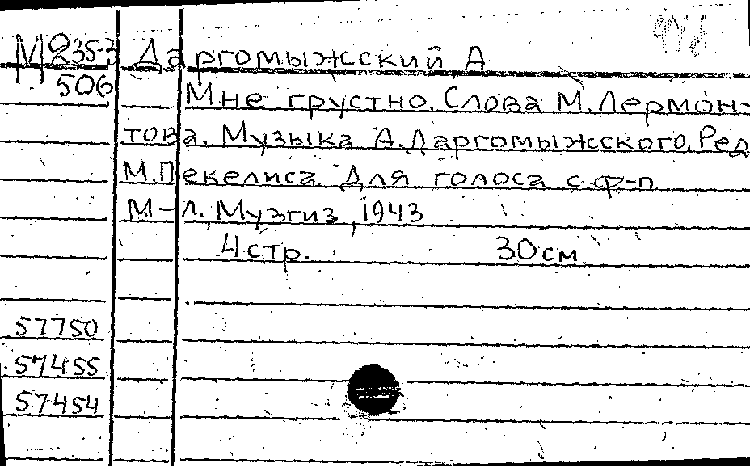 М235-3 Даргомыжский А
506 Мне грустно. Слова М. Лермон-
това. Музыка А. Даргомыжского. Ред
М. Пекелиса. Для голоса с ф-п
М-Л. Музгиз, 1943
4 стр. 30 см
57750
57455
57454